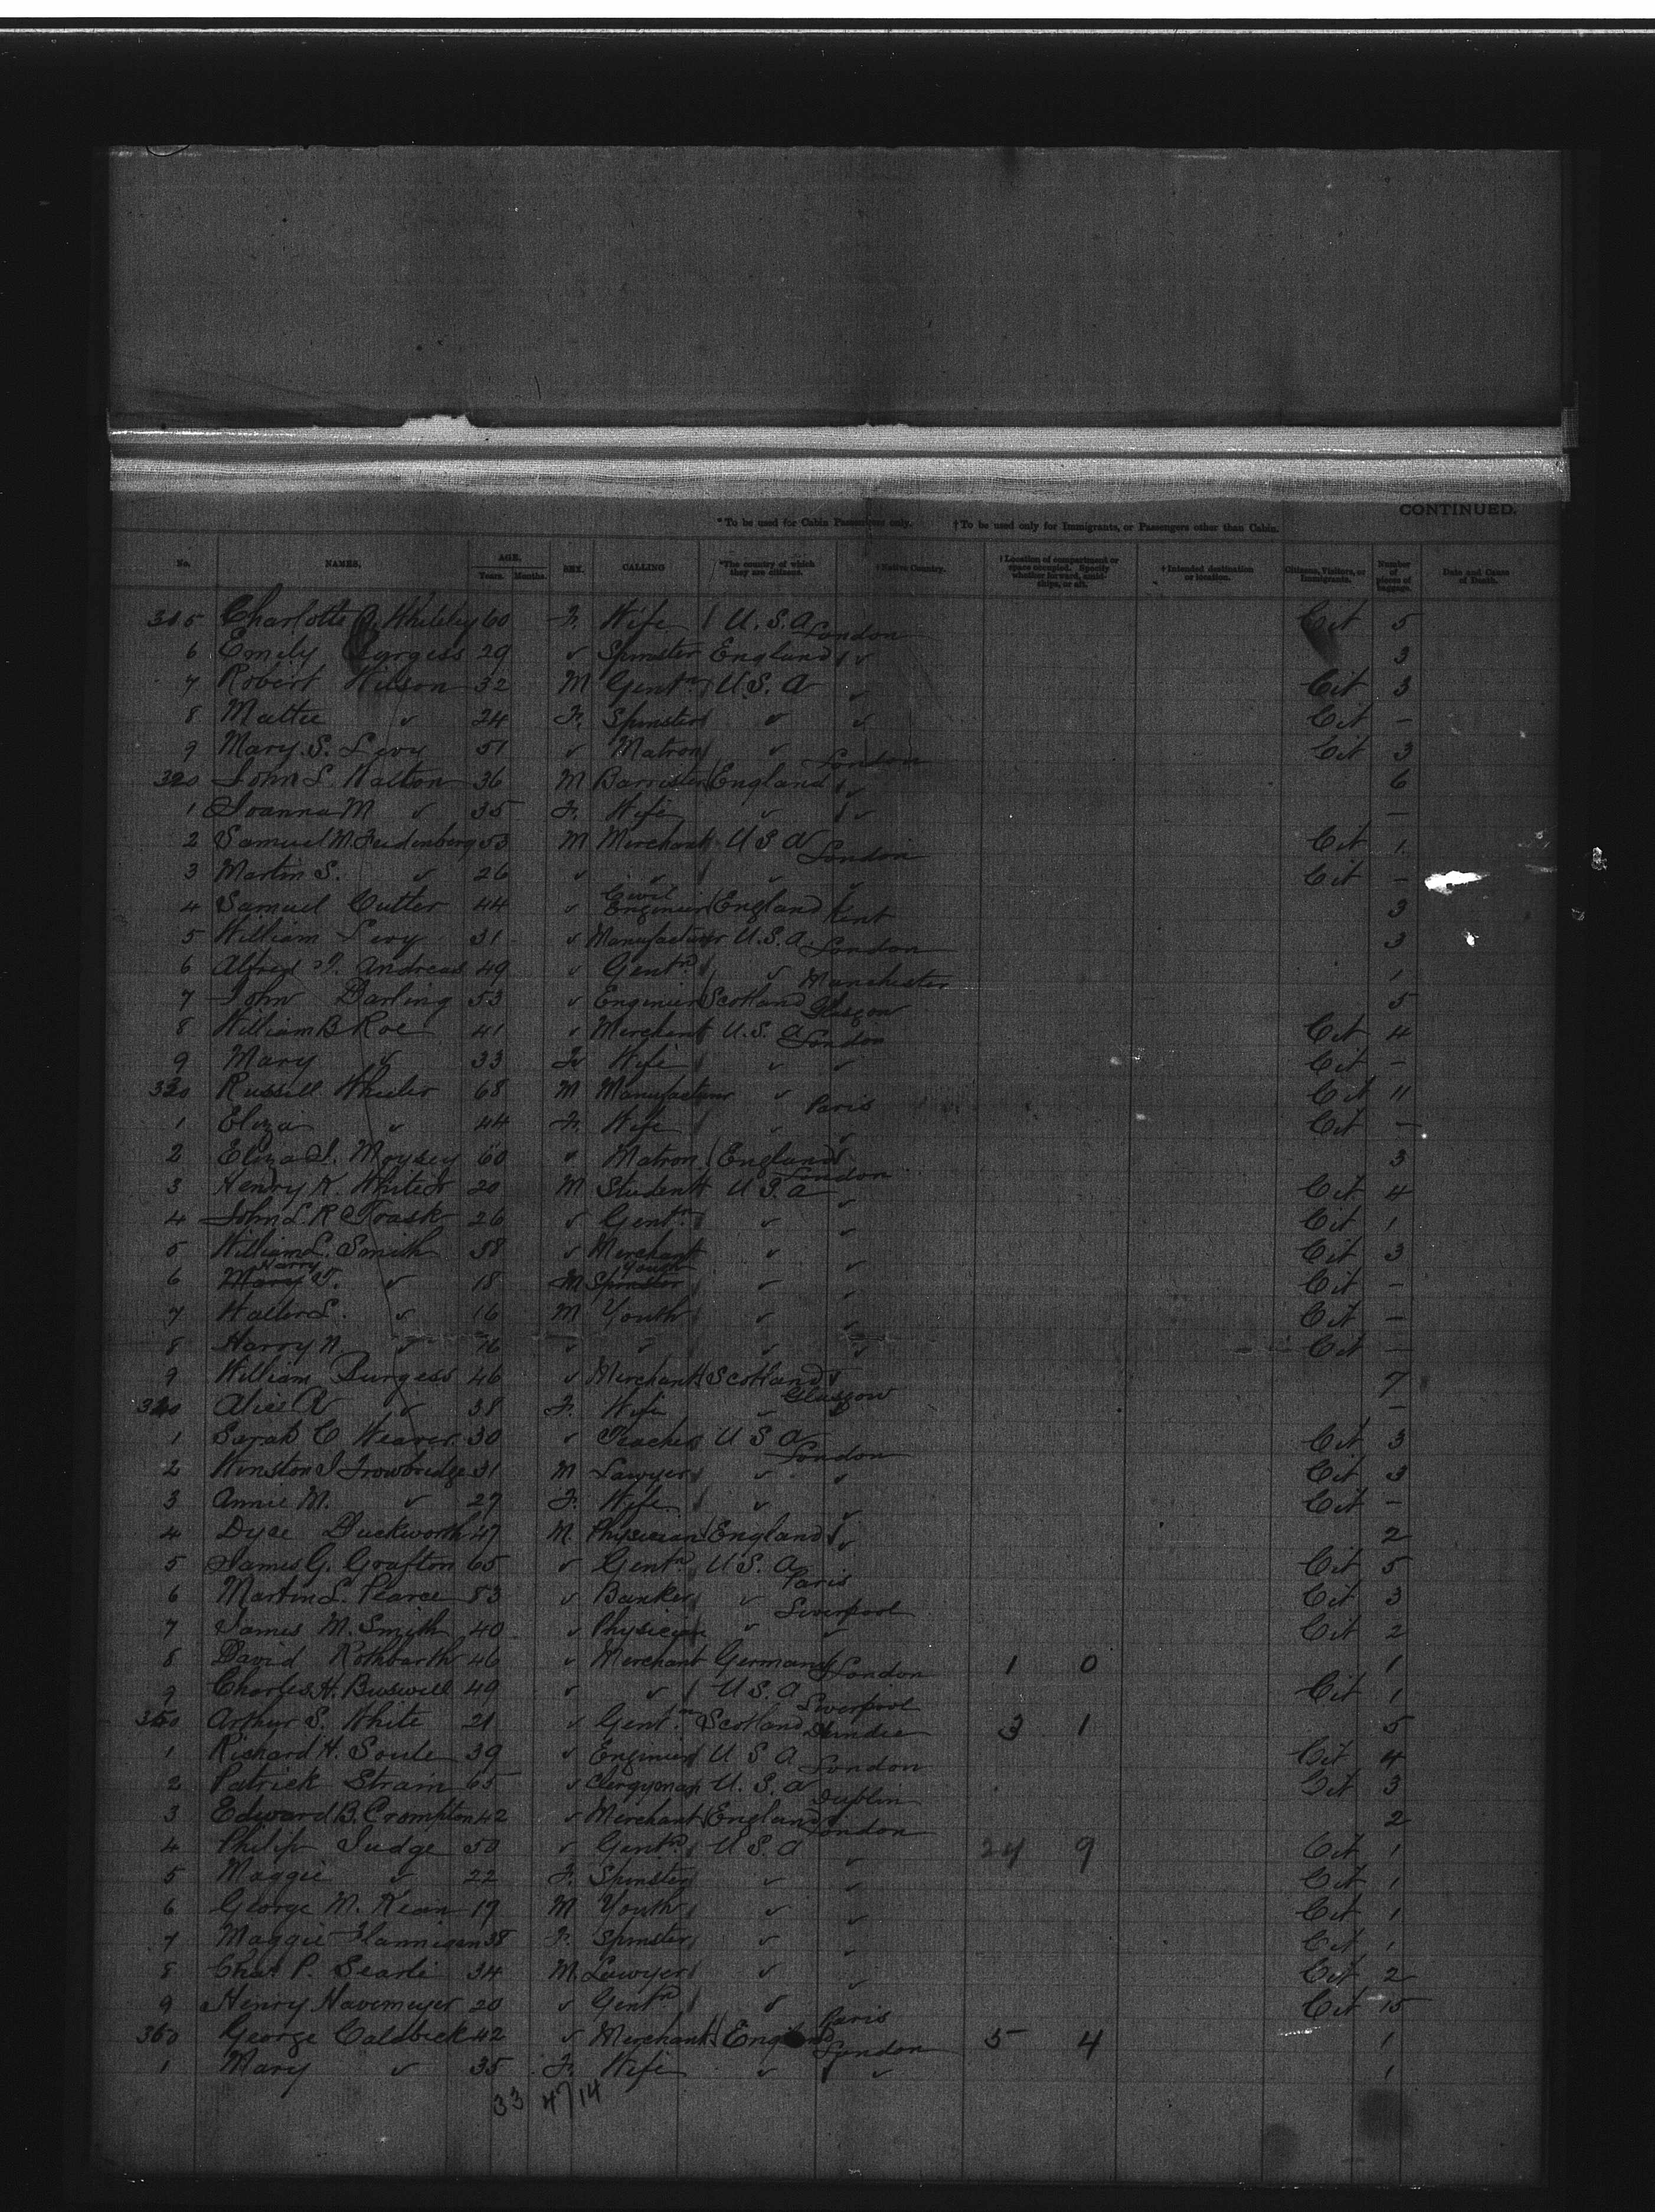 CONTINUED.
* To be used for Cabin Passengers only. † To be used only for Immigrants, or Passengers other than Cabin.
No. NAMES. AGE. Years. Months. SEX. CALLING *The country of which they are citizens. † Native Country. † Location of compartment or space occupied. Specify whether forward, amidships, or aft. † Intended destination or location. Citizens, Visitors, or Immigrants. Number of pieces of baggage. Date and Cause of Death.
315 Charlotte B. Whiteley 60 F. Wife U.S.A London Cit 5
6 Emily Burgess 29 ✓ Spinster England ✓ 3
7 Robert Wilson 32 M Gentn U.S.A ✓ Cit 3
8 Mattie ✓ 24 F. Spinster ✓ ✓ Cit -
9 Mary S. Levy 51 ✓ Matron ✓ London Cit 3
320 John L Walton 36 M Barrister England ✓ 6
1 Joanna M ✓ 35 F. Wife ✓ ✓ -
2 Samuel M. 53 M Merchant U S A London Cit 1
3 Martin S. ✓ 26 ✓ ✓ ✓ ✓ Cit -
4 Samuel Cutter 44 ✓ Civil Engineer England Kent 3
5 William Levy 31 ✓ Manufacturer U.S.A. London 3
6 Alfred T. Andreas 49 ✓ Gentn ✓ Manchester 1
7 John Darling 53 ✓ Engineer Scotland Glasgow 5
8 William B Roe 41 ✓ Merchant U.S. A London Cit 4
9 Mary ✓ 33 F Wife ✓ ✓ Cit -
330 Russell Wheeler 68 M Manufacturer ✓ Paris Cit 11
1 Eliza ✓ 44 F. Wife ✓ ✓ Cit -
2 Eliza J. Moysey 60 ✓ Matron England London 3
3 Henry K. White Jr 20 M Student U S. A ✓ Cit 4
4 John L. R Trask 26 ✓ Gentn ✓ ✓ Cit 1
5 William L. Smith 38 ✓ Merchant ✓ ✓ Cit 3
6 Mary Harry T. ✓ 18 M Spinster Youth ✓ ✓ Cit -
7 Walter L. ✓ 16 M Youth ✓ ✓ Cit -
8 Harry N. ✓ 16 ✓ ✓ ✓ ✓ Cit -
9 William Burgess 46 ✓ Merchant Scotland Glasgow 7
340 Alice A ✓ 38 F. Wife ✓ ✓ -
1 Sarah C Weaver 30 ✓ Teacher U S A London Cit 3
2 Winston J Trowbridge 31 M Lawyer ✓ ✓ Cit 3
3 Annie M. ✓ 27 F. Wife ✓ ✓ Cit -
4 Dyce Duckworth 47 M. Physician England ✓ 2
5 James G. Grafton 65 ✓ Gentn U.S. A Paris Cit 5
6 Martin L. Pearce 53 ✓ Banker ✓ Liverpool Cit 3
7 James M. Smith 40 ✓ Physician ✓ ✓ Cit 2
8 David Rothbarth 46 ✓ Merchant Germany London 1 0 1
9 Charles H. Buswell 49 ✓ ✓ U S. A Liverpool Cit 1
350 Arthur S. White 21 ✓ Gentn Scotland Dundee 3 1 5
1 Richard H. Soule 39 ✓ Engineer U S A London Cit 4
2 Patrick Strain 65 ✓ Clergyman U. S. A Dublin Cit 3
3 Edward B. Crompton 42 ✓ Merchant England London 2
4 Philip Judge 50 ✓ Gentn U S. A ✓ 24 9 Cit 1
5 Maggie ✓ 22 F. Spinster ✓ ✓ Cit 1
6 George M. Kean 19 M Youth ✓ ✓ Cit 1
7 Maggie Flannigan 38 F. Spinster ✓ ✓ Cit 1
8 Chas P. Searle 34 M. Lawyer ✓ ✓ Cit 2
9 Henry Havemeyer 20 ✓ Gentn ✓ Paris Cit 15
360 George Caldbeck 42 ✓ Merchant England London 5 4 1
1 Mary ✓ 35 F. Wife ✓ ✓ 1
33 47 14